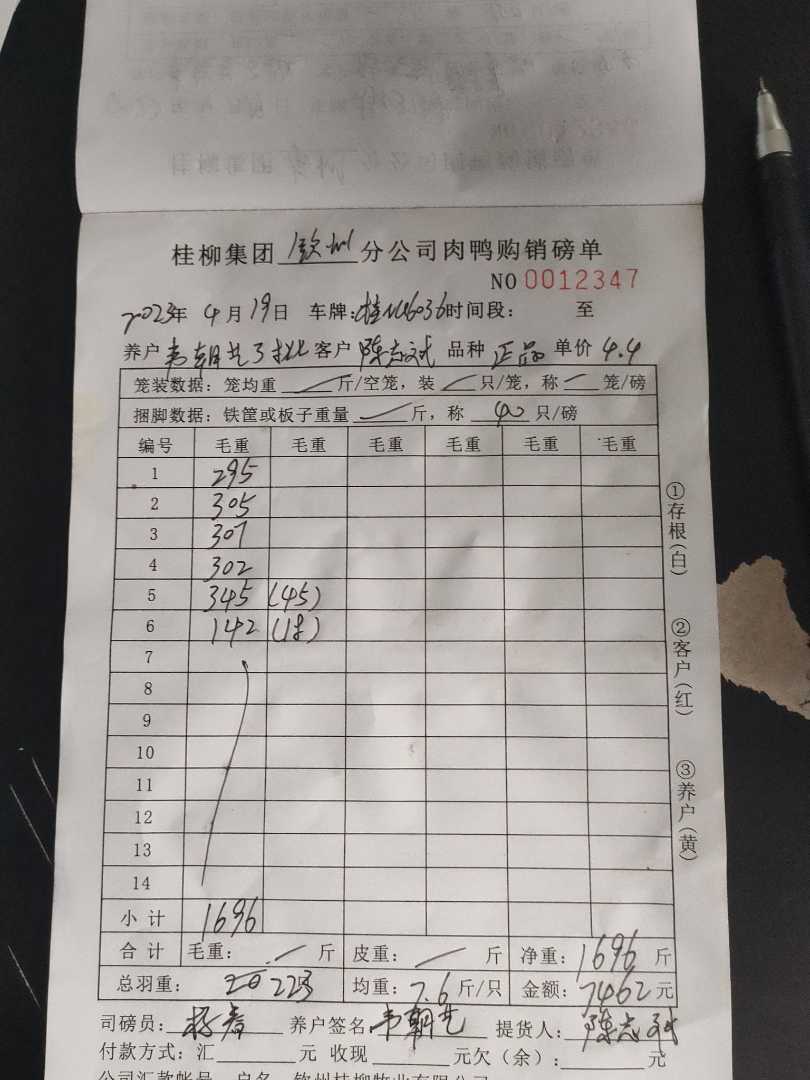 桂柳集团 钦州 分公司肉鸭购销磅单
NO 0012347
2023年 4月19日 车牌:桂N46036时间段: 至
养户 韦朝艺3批 客户 陈志斌 品种 正品 单价 4.4
笼装数据:笼均重 斤/空笼,装 只/笼,称 笼/磅
捆脚数据:铁筐或板子重量 斤,称 40 只/磅
编号 毛重 毛重 毛重 毛重 毛重 毛重
1 295
2 305
3 307
4 302
5 345 (45)
6 142 (18)
7
8
9
10
11
12
13
14
小计 1696
合计 毛重: 斤 皮重: 斤 净重:1696 斤
总羽重: 223 均重:7.6 斤/只 金额:7462 元
司磅员: 养户签名:韦朝艺 提货人:陈志斌
付款方式:汇 元 收现 元欠(余): 元
公司汇款帐号 户名 钦州桂柳牧业有限公司
①存根(白)
②客户(红)
③养户(黄)